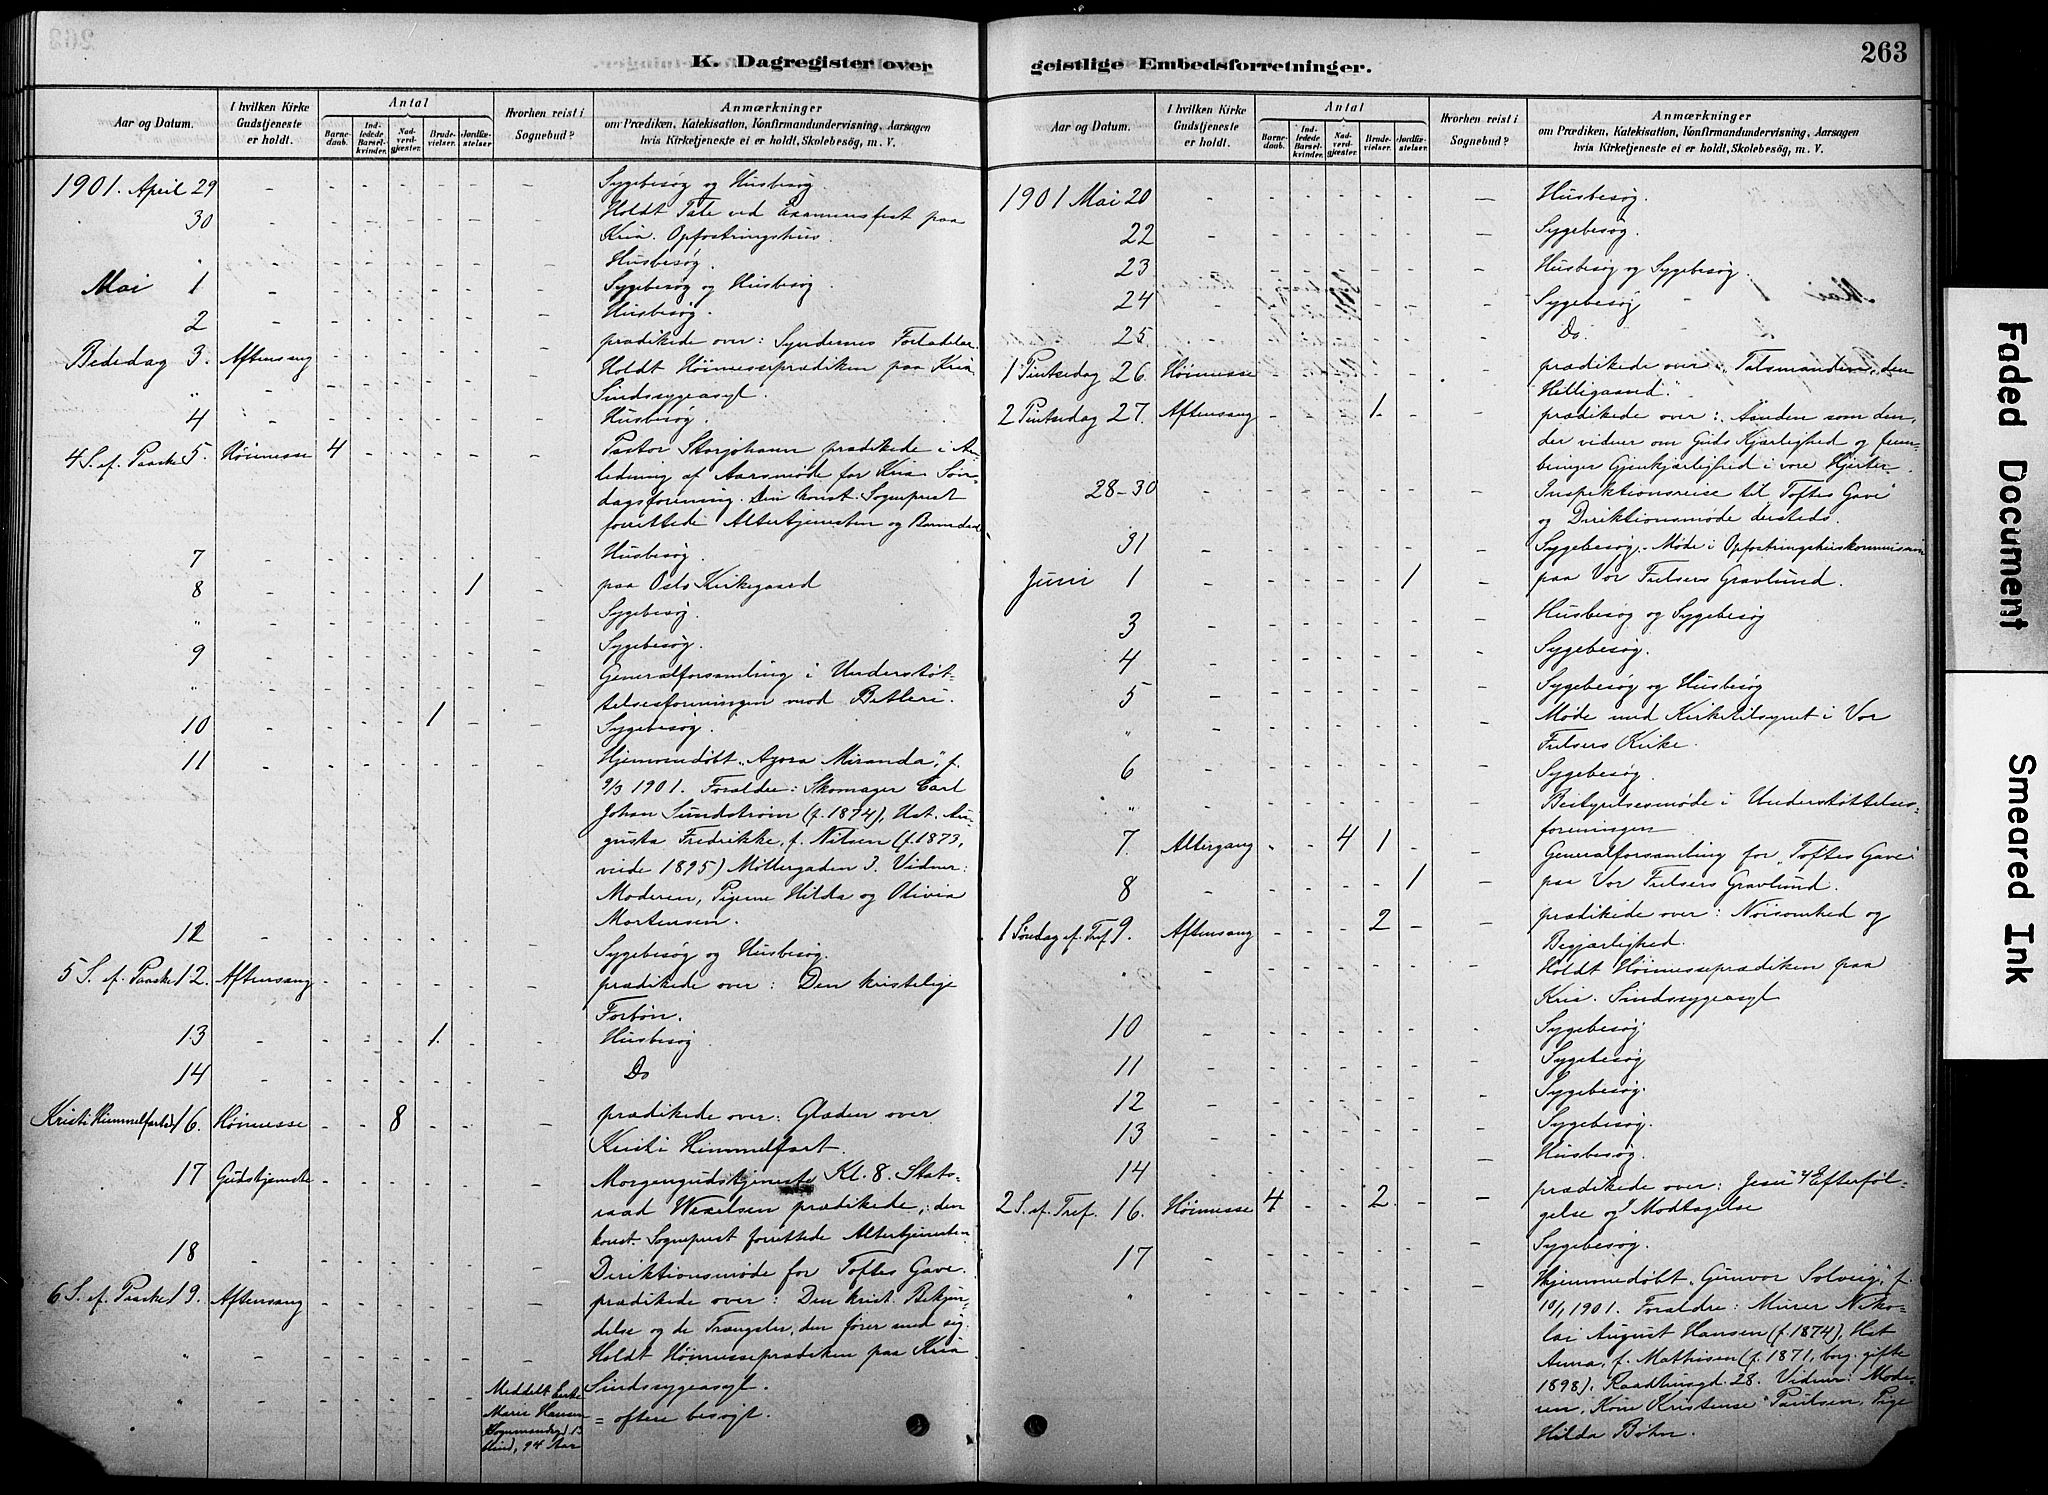 K. Dagregister over
Aar og Datum.
I hvilken Kirke Gudstjeneste er holdt.
Antal
Barnedaab.
Indledede Barselkvinder.
Nadverdgjæster.
Brudevielser.
Jordfæstelser
Hvorhen reist i Sognebud?
Anmærkninger
om Prædiken, Katekisation, Konfirmandundervisning, Aarsagen
hvis Kirketjeneste ei er holdt, Skolebesög, m. V.
1901. April 29 - - - - - - - Sygebesøg og Husbesøg.
30 - - - - - - - Holdt Tale ved Examensfest paa
Kria. Opfostringshus.
" - - - - - - - Husbesøg.
Mai 1 - - - - - - - Sygebesøg og Husbesøg
2 - - - - - - - Husbesøg.
Bededag 3. Aftensang - - - - - - prædikede over: Syndernes Forladelse.
" - - - - - - - Holdt Høimesseprædiken paa Kria
Sindssygeasyl.
4 - - - - - - - Husbesøg.
4 S. ef. Paaske 5. Høimesse 4 - - - - - Pastor Storjohann prædikede i An-
ledning af Aarsmøde for Kria Søn-
dagsforening. Den konst. Sogneprest
forrettede Altertjenesten og Barnedaab
7 - - - - - - - Husbesøg.
8 - - - - - 1 - paa Oslo Kirkegaard
" - - - - - - - Sygebesøg
9 - - - - - - - Sygebesøg.
" - - - - - - - Generalforsamling i Understøt-
telsesforeningen mod Betleri.
10 - - - - 1 - - Sygebesøg.
11 - - - - - - - Hjemmedøbt "Agora Miranda", f.
9/3 1901. Forældre: Skomager Carl
Johan Sundstrøm (f. 1874), Hst. Au-
gusta Fredrikke, f. Nilsen (f. 1873,
viede 1895) Møllergaden 3. Vidner:
Moderen, Pigerne Hilda og Olivia
Mortensen.
12 - - - - - - - Sygebesøg og Husbesøg.
5 S. ef. Paaske 12. Aftensang - - - - - - prædikede over: Den kristelige
Forbøn.
13 - - - - 1. - - Husbesøg
14 - - - - - - - Do
Kristi Himmelfartsd. 16. Høimesse - - 8 - - - prædikede over: Glæden over
Kristi Himmelfart.
17 Gudstjeneste - - - - - - Morgengudstjeneste Kl. 8. Stats-
raad Wexelsen prædikede; den
konst. Sogneprest forrettede Altertjenesten
18 - - - - - - - Direktionsmøde for Toftes Gave.
6 S. ef. Paaske 19. Aftensang - - - - - - prædikede over: Den krist. Bekjen-
delse og de Trængsler, den fører med sig.
" - - - - - - - Holdt Høimesseprædiken paa Kria
Sindssygeasyl.
" - - - - - - Meddelt Enke
Marie Hansen
Hogmandsgd 13
blind, 94 Aar
= oftere besøgt.
geistlige Embedsforretninger.
263
Aar og Datum.
I hvilken Kirke Gudstjeneste er holdt.
Antal
Barnedaab.
Indledede Barselkvinder.
Nadverdgjæster.
Brudevielser.
Jordfæstelser.
Hvorhen reist i Sognebud?
Anmærkninger
om Prædiken, Katekisation, Konfirmandundervisning, Aarsagen
hvis Kirketjeneste ei er holdt, Skolebesög, m. V.
1901 Mai 20 - - - - - - - Husbesøg.
22 - - - - - - - Sygebesøg.
23 - - - - - - - Husbesøg og Sygebesøg.
24 - - - - - - - Sygebesøg
25 - - - - - - - Do.
1 Pintsedag 26. Høimesse - - - - - - prædikede over "Talsmanden, den
Helligaand."
2 Pintsedag 27. Aftensang - - - 1. - - prædikede over: Aanden som den,
der vidner om Guds Kjærlighed og frem-
bringer Gjenkjærlighed i vore Hjerter.
28-30 - - - - - - - Inspektionsreise til "Toftes Gave"
og Direktionsmøde dersteds.
31 - - - - - - - Sygebesøg. Møde i Opfostringshuskommission
Juni 1 - - - - - 1 - paa Vor Frelsers Gravlund.
3 - - - - - - - Husbesøg og Sygebesøg
4 - - - - - - - Sygebesøg.
5 - - - - - - - Sygebesøg og Husbesøg
" - - - - - - - Møde med Kirketilsynet i Vor
Frelsers Kirke.
6 - - - - - - - Sygebesøg.
" - - - - - - - Bestyrelsesmøde i Understøttelses-
foreningen
7. Altergang - - 4 1 - - Generalforsamling for "Toftes Gave"
8 - - - - - 1 - paa Vor Frelsers Gravlund.
1 Søndag ef. Tref. 9. Aftensang - - - 2 - - prædikede over: Nøisomhed og
Begjærlighed.
" - - - - - - - Holdt Høimesseprædiken paa
Kria. Sindssygeasyl
10 - - - - - - - Sygebesøg
11 - - - - - - - Sygebesøg
12 - - - - - - - Sygebesøg.
13 - - - - - - - Sygebesøg.
14 - - - - - - - Husbesøg.
2 S. ef. Tref. 16. Høimesse 4 - - 2. - - prædikede over: Jesu Efterføl-
gelse og Modtagelse
17 - - - - - - - Sygebesøg.
" - - - - - - - Hjemmedøbt "Gunvor Solveig", f.
10/1 1901. Forældre: Murer Niko-
lai August Hansen (f. 1874), Hst
Anna, f. Mathisen (f. 1871, borg. gifte
1898). Raadhusgd. 28. Vidner: Mode-
ren, Kone Kristense Paulsen, Pige
Hilda Bøhn.
Faded Document
Smeared Ink